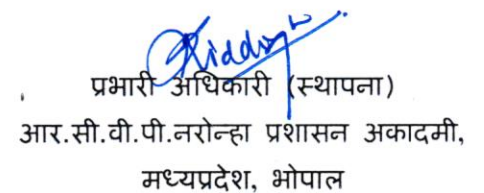 प्रभारी अधिकारी (स्थापना)
आर.सी.वी.पी.नरोन्हा प्रशासन अकादमी,
मध्यप्रदेश, भोपाल